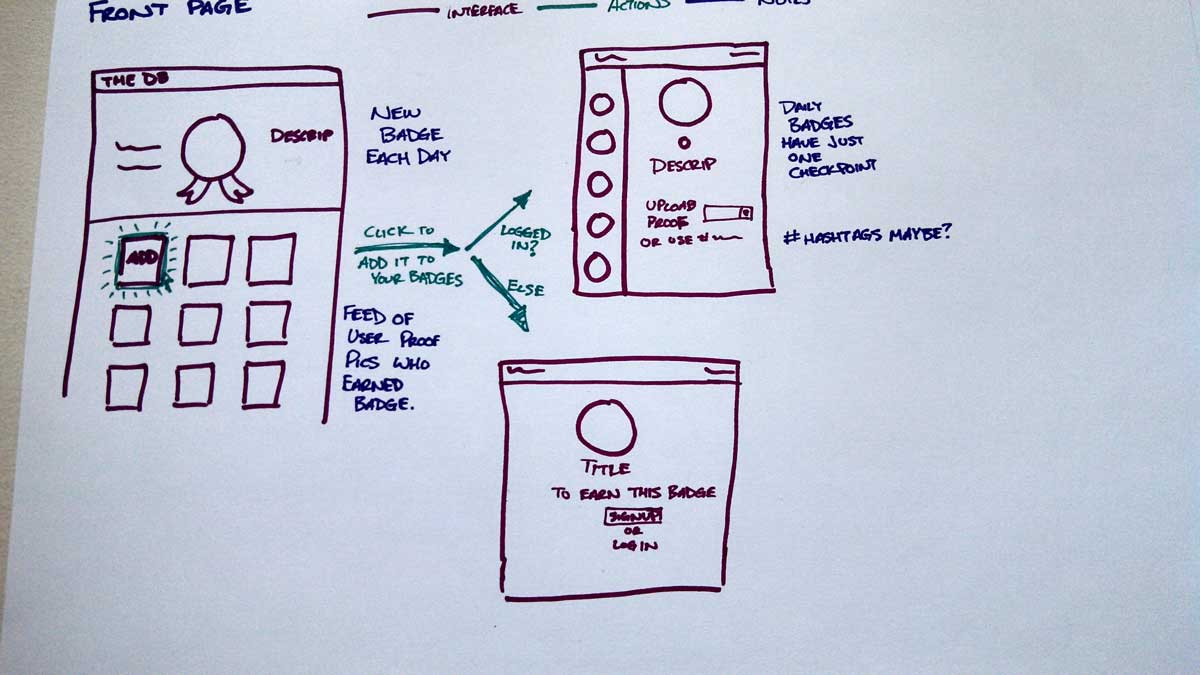 FRONT PAGE
INTERFACE
ACTIONS
NOTES
THE DB
DESCRIP
NEW
BADGE
EACH DAY
ADD
CLICK TO
ADD IT TO
YOUR BADGES
LOGGED
IN?
ELSE
FEED OF
USER PROOF
PICS WHO
EARNED
BADGE.
DESCRIP
UPLOAD
PROOF
OR USE #
DAILY
BADGES
HAVE JUST
ONE
CHECKPOINT
#HASHTAGS MAYBE?
TITLE
TO EARN THIS BADGE
SIGNUP
OR
LOGIN